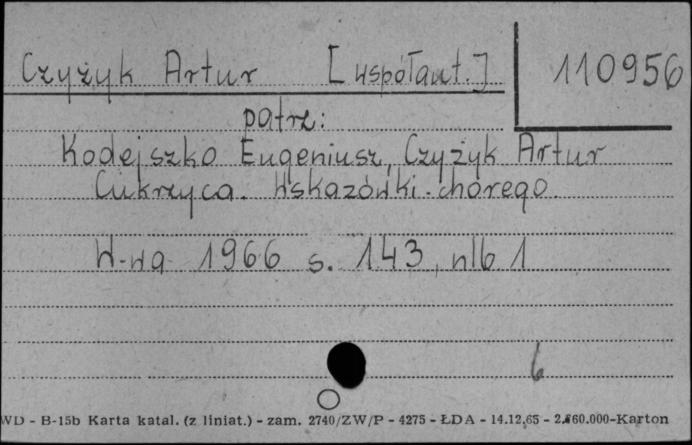 Czyżyk Artur [współaut.] 110956
patrz:
Kodejszko Eugeniusz, Czyżyk Artur
Cukrzyca. Wskazówki chorego
W-wa 1966 s. 143, nlb 1
6
WD - B-15b Karta katal. (z liniat.) - zam. 2740/ZW/P - 4275 - ŁDA - 14.12.65 - 2.860.000-Karton